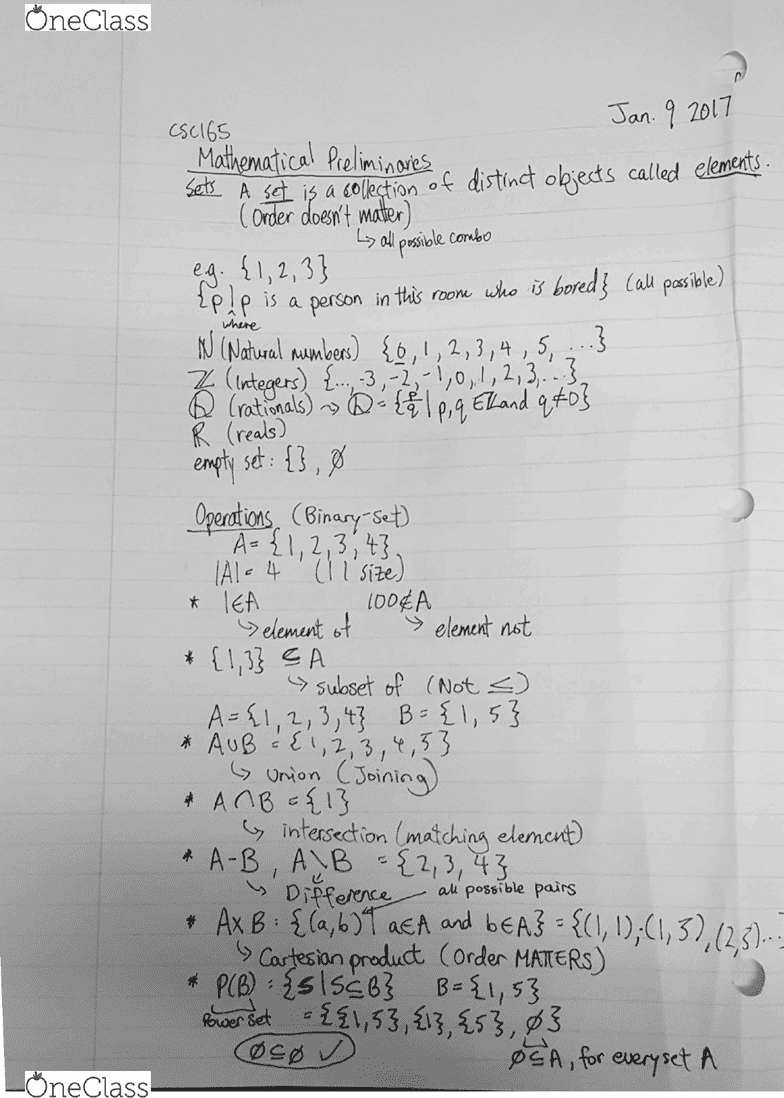 OneClass
Jan. 9 2017
CSC165
Mathematical Preliminaries
Sets A set is a collection of distinct objects called elements.
(Order doesn't matter)
↳ all possible combo
e.g. {1, 2, 3}
{p | p is a person in this room who is bored} (all possible)
where
ℕ (Natural numbers) {0, 1, 2, 3, 4, 5, ...}
ℤ (Integers) {..., -3, -2, -1, 0, 1, 2, 3, ...}
ℚ (rationals) → ℚ = {p/q | p, q ∈ ℤ and q ≠ 0}
ℝ (reals)
empty set: {}, ∅
Operations (Binary-set)
A = {1, 2, 3, 4}
|A| = 4 (| | size)
* 1∈A 100∉A
↳ element of ↳ element not
* {1,3} ⊆ A
↳ subset of (Not ≤)
A = {1, 2, 3, 4} B = {1, 5}
* A∪B = {1, 2, 3, 4, 5}
↳ union (Joining)
* A∩B = {1}
↳ intersection (matching element)
* A-B, A\B = {2, 3, 4}
↳ Difference all possible pairs
* A×B : {(a,b) | a∈A and b∈A} = {(1, 1); (1, 5), (2,5)...
↳ Cartesian product (Order MATTERS)
* P(B) : {S | S⊆B} B = {1, 5}
Power set = {{1, 5}, {1}, {5}, ∅}
∅⊆∅ ✓ ∅⊆A, for every set A
OneClass